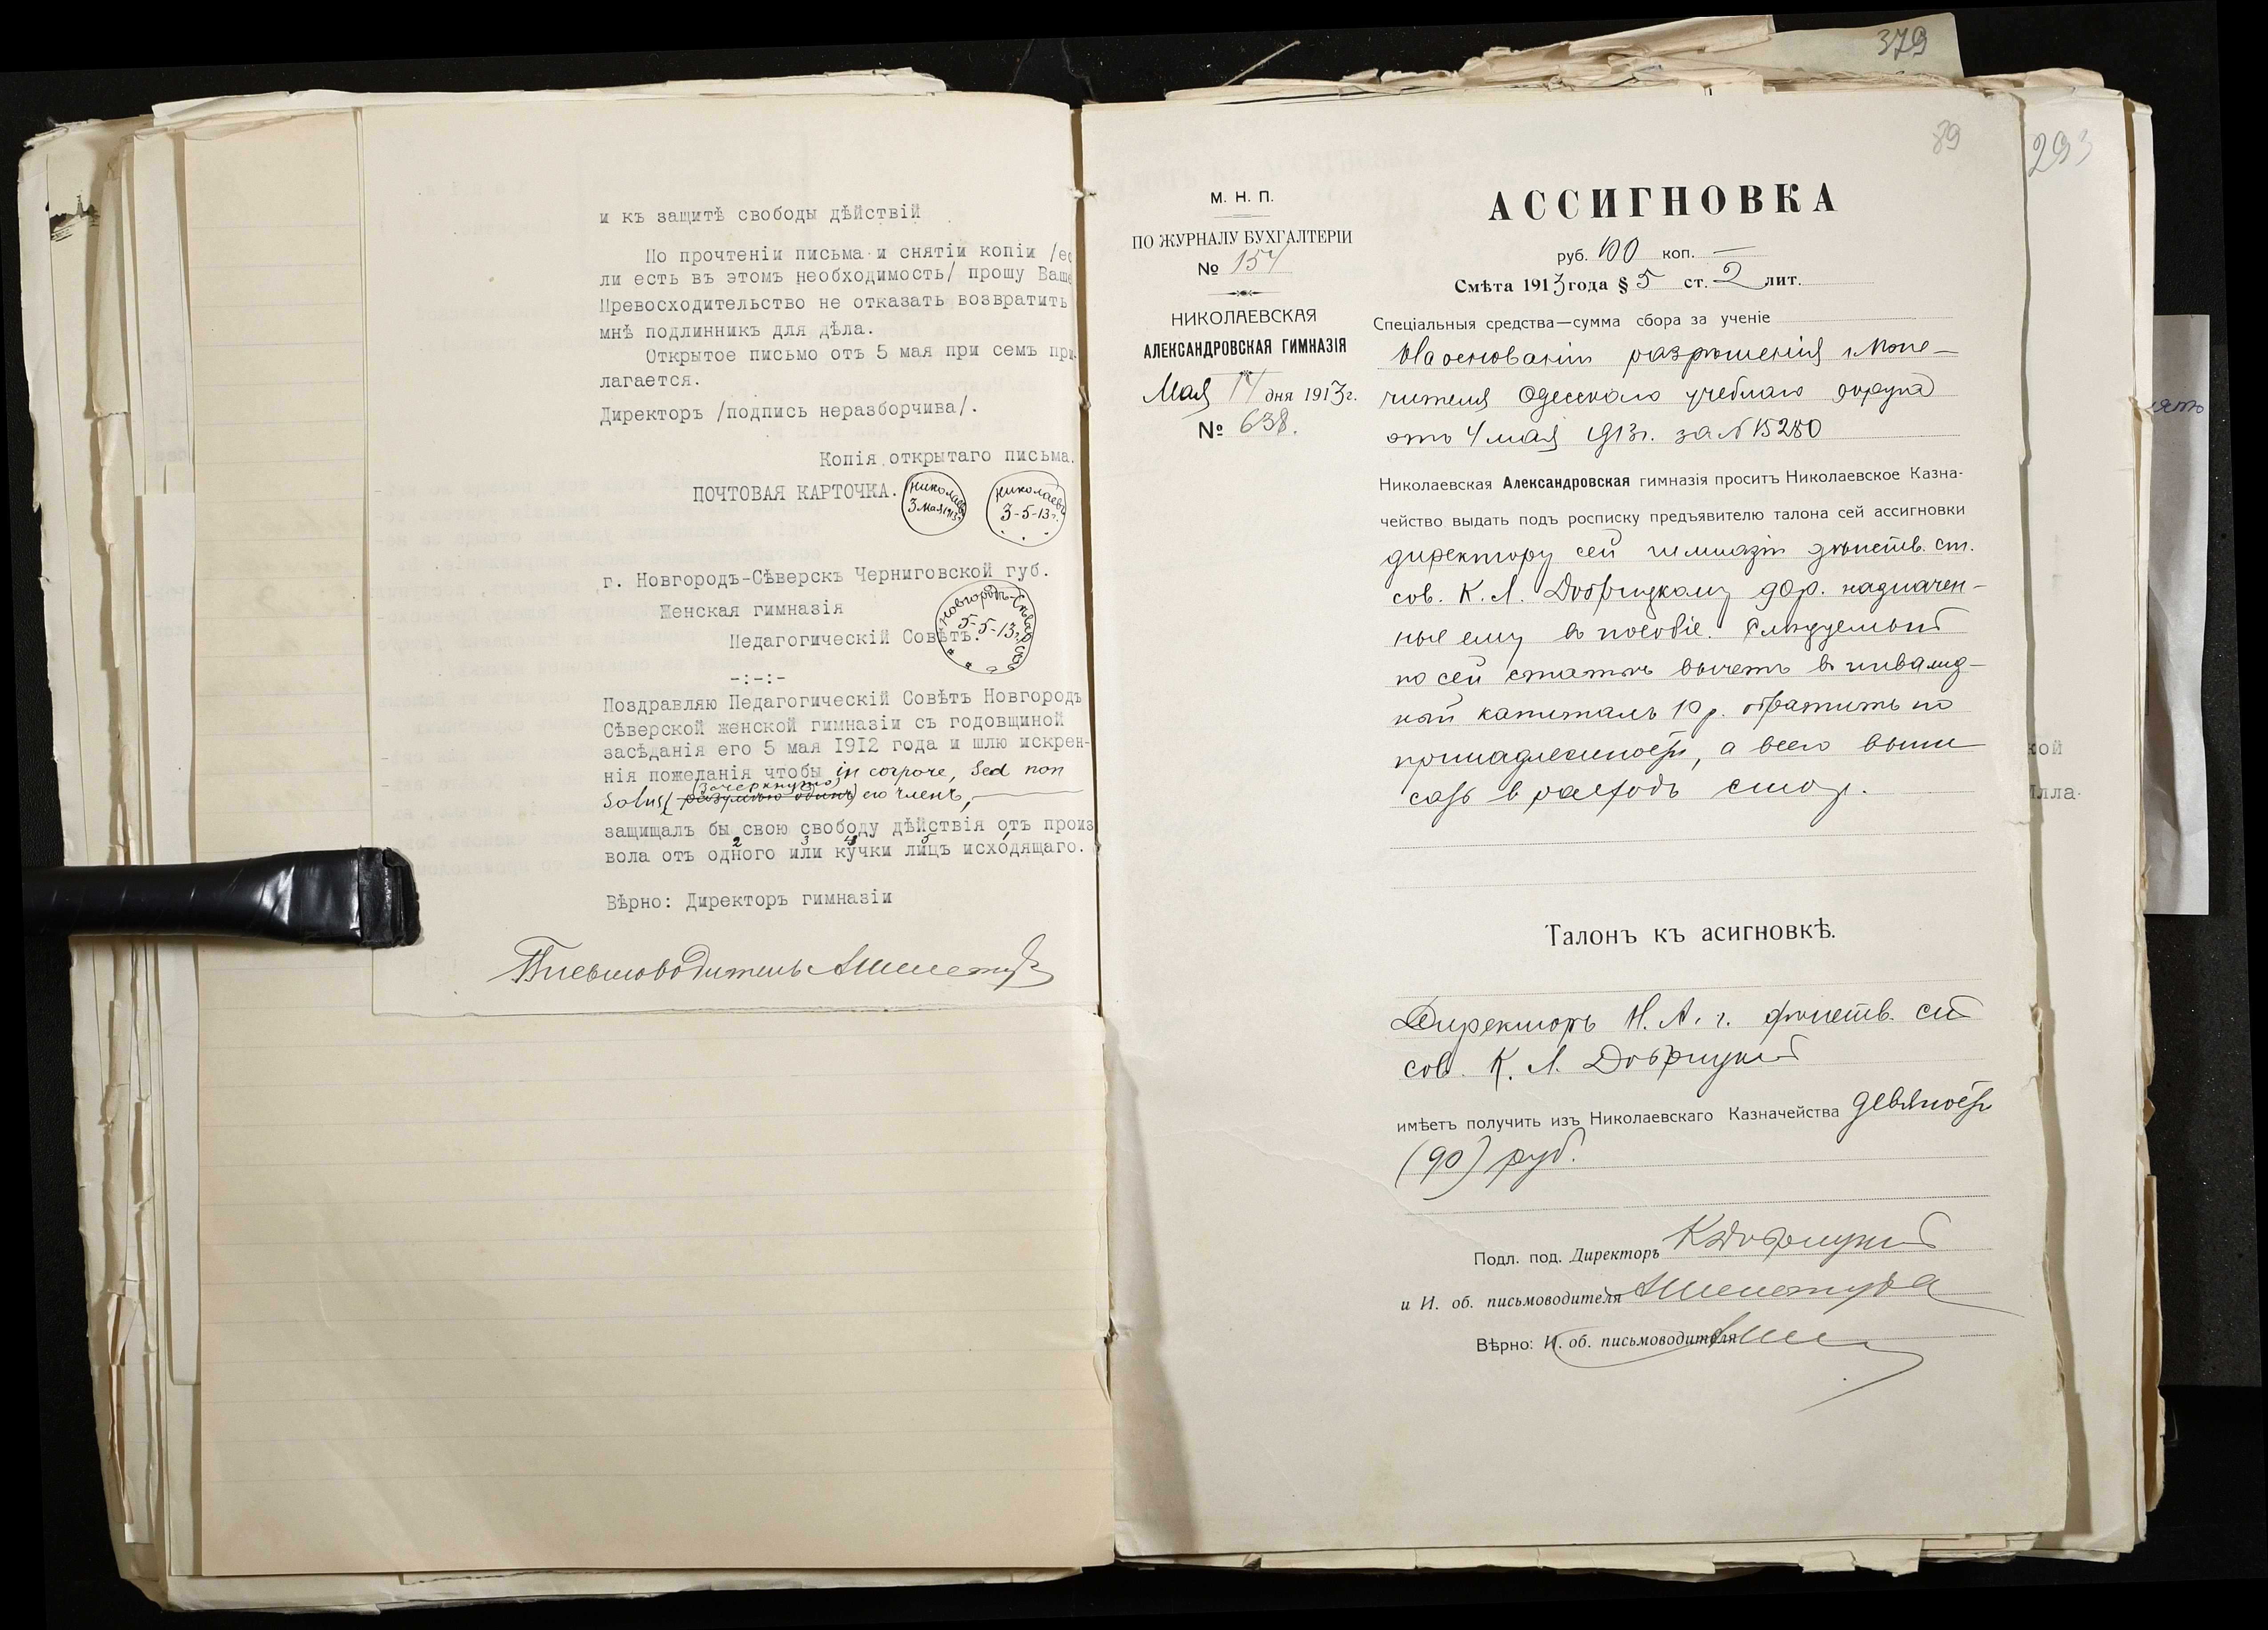 и къ защитѣ свободы дѣйствій
По прочтеніи письма и снятіи копіи /ес
ли есть въ этомъ необходимость/ прошу Ваше
Превосходительство не отказать возвратить
мнѣ подлинникъ для дѣла.
Открытое письмо отъ 5 мая при семъ при
лагается.
Директоръ /подпись неразборчива/.
Копія открытаго письма.
ПОЧТОВАЯ КАРТОЧКА.
Николаевъ
3 мая 1913г.
Николаевъ
3-5-13г.
г. Новгородъ-Сѣверскъ Черниговской губ.
Женская гимназія
Педагогическій Совѣтъ.
Новгородъ-Сѣверскъ
5-5-13г.
-:-:-
Поздравляю Педагогическій Совѣтъ Новгородъ
Сѣверской женской гимназіи съ годовщиной
засѣданія его 5 мая 1912 года и шлю искрен-
нія пожеланія чтобы in corpore, sed non
(зачеркнуто)
solus его членъ,
защищалъ бы свою свободу дѣйствія отъ произ
2 3 4 5 1
вола отъ одного или кучки лицъ исходящаго.
Вѣрно: Директоръ гимназіи
Письмоводитель АШелестура
379
293
89
М. Н. П.
ПО ЖУРНАЛУ БУХГАЛТЕРІИ
№ 154
НИКОЛАЕВСКАЯ
АЛЕКСАНДРОВСКАЯ ГИМНАЗІЯ
Мая 14 дня 1913г.
№ 638.
АССИГНОВКА
руб. 100 коп. —
Смѣта 1913 года § 5 ст. 2 лит.
Спеціальныя средства—сумма сбора за ученіе
На основаніи разрѣшенія г. Попе-
чителя Одесскаго учебнаго округа
отъ 4 мая 1913г. за № 15280
Николаевская Александровская гимназія проситъ Николаевское Казна-
чейство выдать подъ росписку предъявителю талона сей ассигновки
директору сей гимназіи дѣйств. ст.
сов. К. Л. Добрицкому 90р. назначен-
ные ему въ пособіе. Слѣдуемый
по сей статьѣ вычетъ въ инвалид-
ный капиталъ 10 р. обратить по
принадлежности, а всего выпи-
сать въ расходъ сто р.
Талонъ къ асигновкѣ.
Директоръ Н. А. г. дѣйств. ст.
сов. К. Л. Добрицкій
имѣетъ получить изъ Николаевскаго Казначейства девяносто
(90) руб.
Подл. под. Директоръ КДобрицкій
и И. об. письмоводителя АШелестура
Вѣрно: И. об. письмоводителя
кой